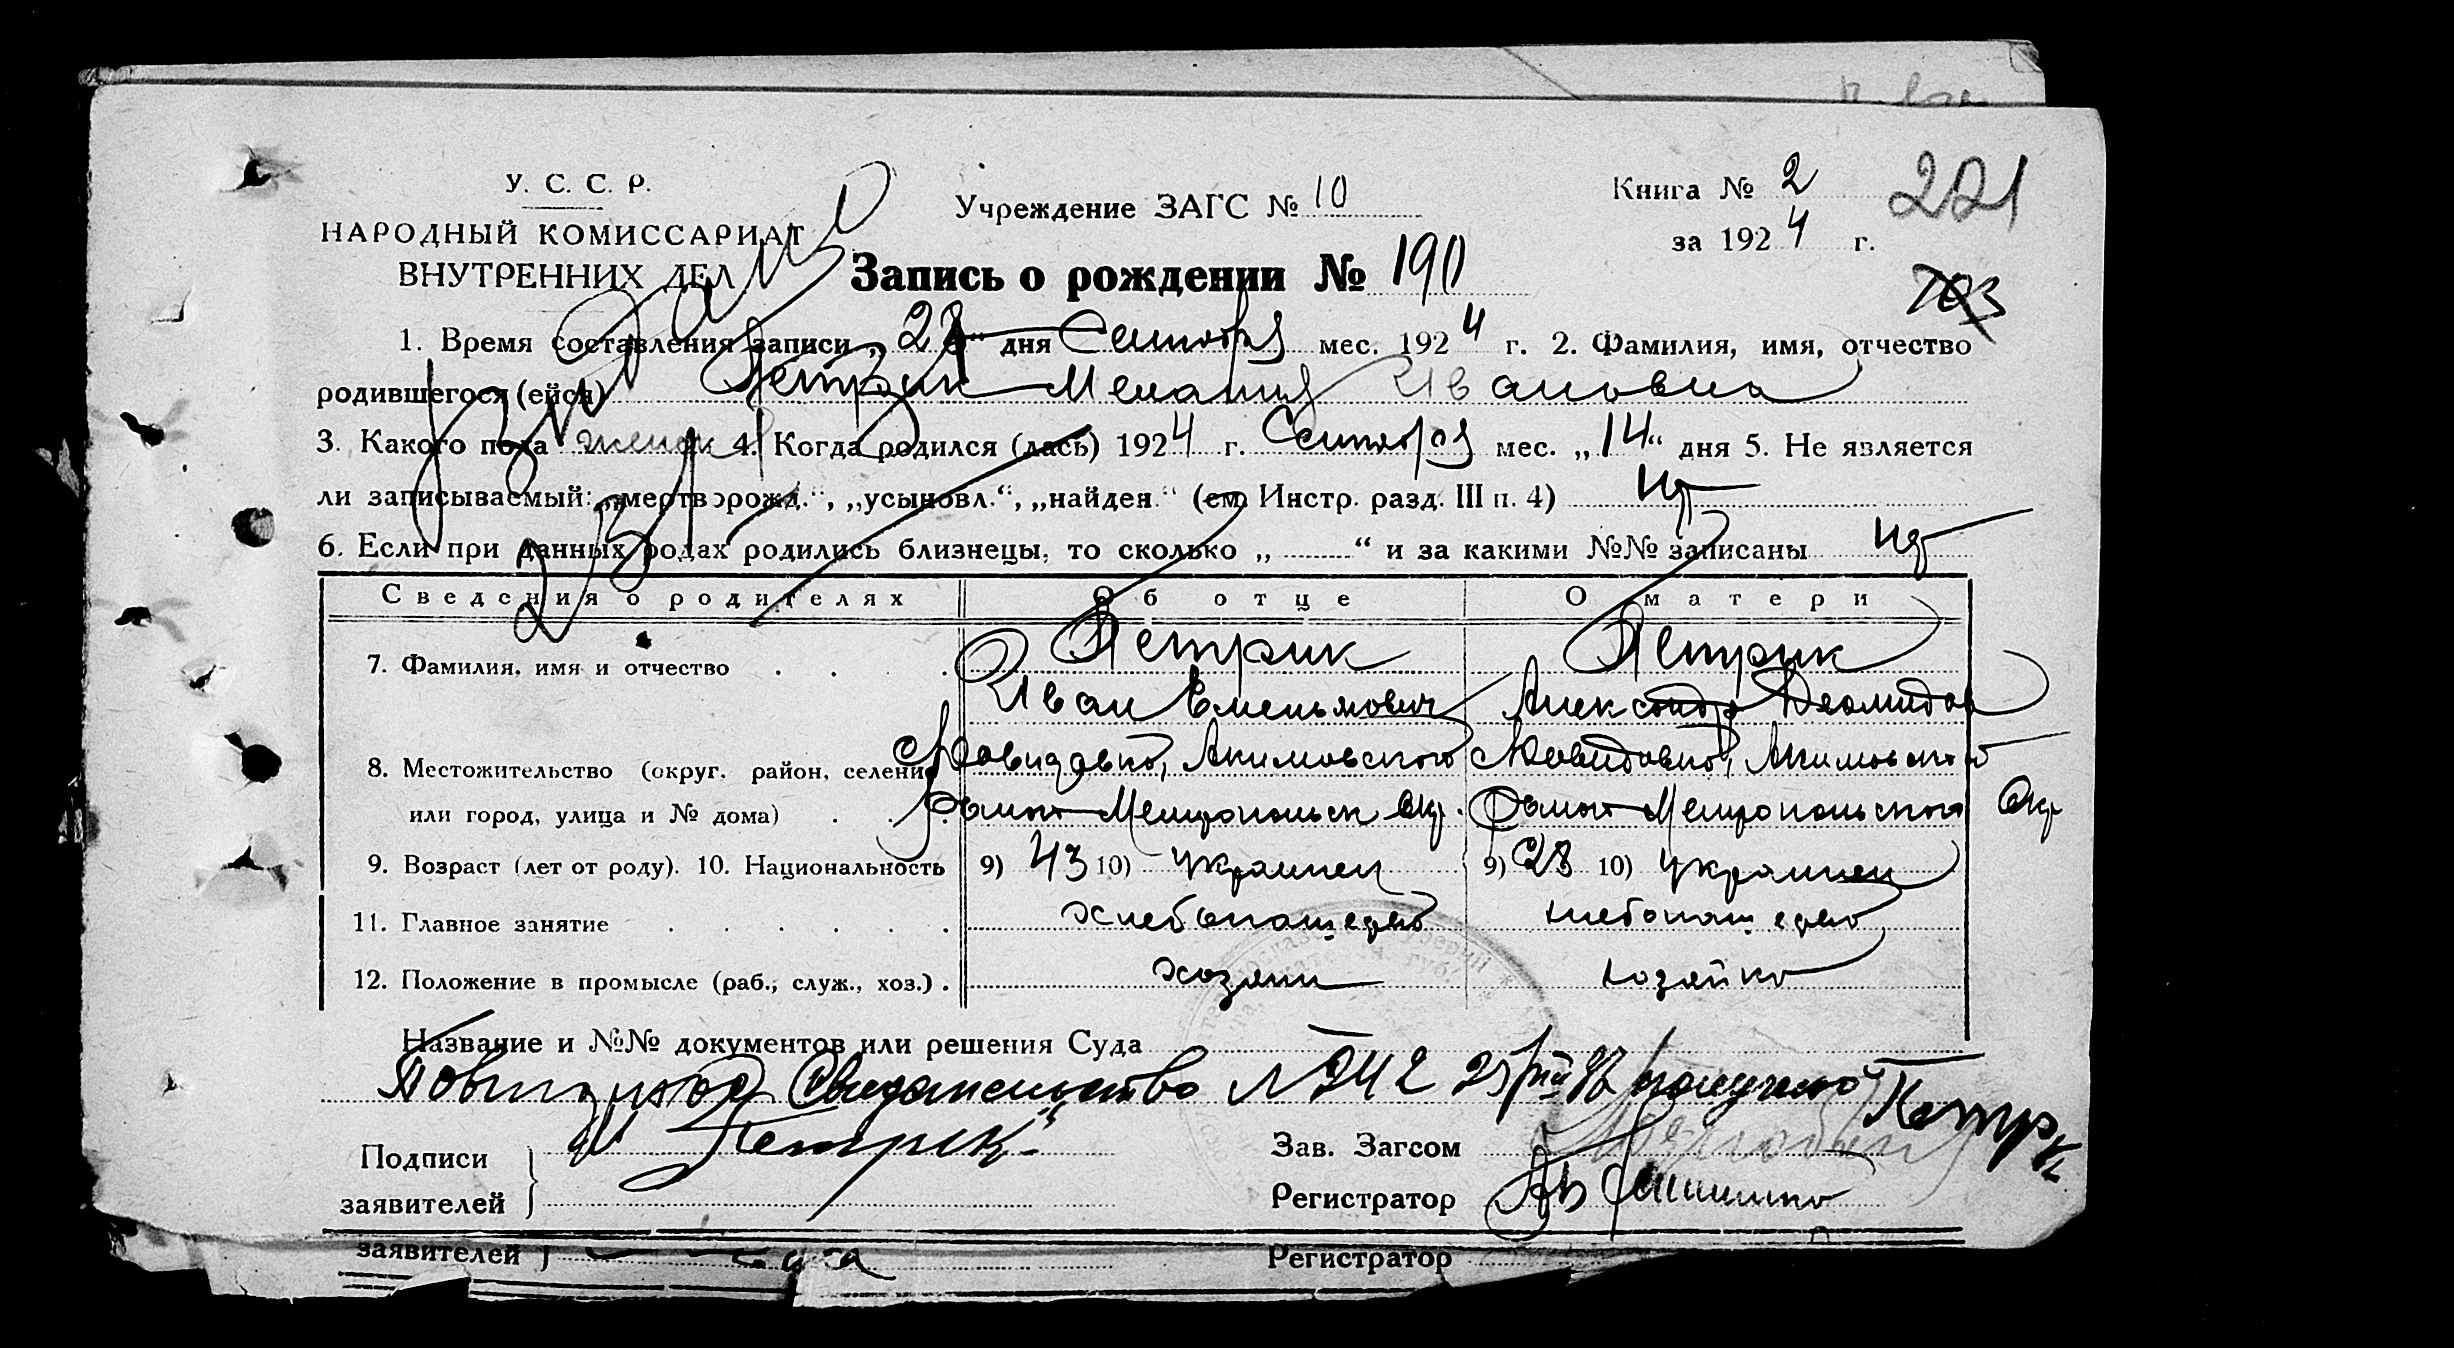 У. С. С. Р.
НАРОДНЫЙ КОМИССАРИАТ
ВНУТРЕННИХ ДЕЛ
Учреждение ЗАГС № 10
Книга № 2
за 1924 г.
221
703
Запись о рождении № 190
1. Время составления записи „28“ дня Сентября мес. 1924 г. 2. Фамилия, имя, отчество
родившегося (ейся) Петрик Мелания Ивановна
3. Какого пола женск 4. Когда родился (лась) 1924 г. Сентября мес. „14“ дня 5. Не является
ли записываемый: „мертворожд.“, „усыновл.“, „найден.“ (см. Инстр. разд. III п. 4) нет
6. Если при данных родах родились близнецы, то сколько „ “ и за какими №№ записаны нет
Сведения о родителях Об отце О матери
7. Фамилия, имя и отчество Петрик Петрик
Иван Емельянович Александра
8. Местожительство (округ, район, селение Давидовка, Акимовского Давидовка, Акимовского
или город, улица и № дома) Района Мелитопольск Окр. Района Мелитопольского Окр
9. Возраст (лет от роду). 10. Национальность 9) 43 10) украинец 9) 28 10) украинец
11. Главное занятие хлебопашество хлебопашество
12. Положение в промысле (раб., служ., хоз.) хозяин хозяйка
Название и №№ документов или решения Суда
Свидетельство № 242 получено Петрик
Подписи
заявителей
Петрик
Зав. Загсом
Регистратор
заявителей
Регистратор